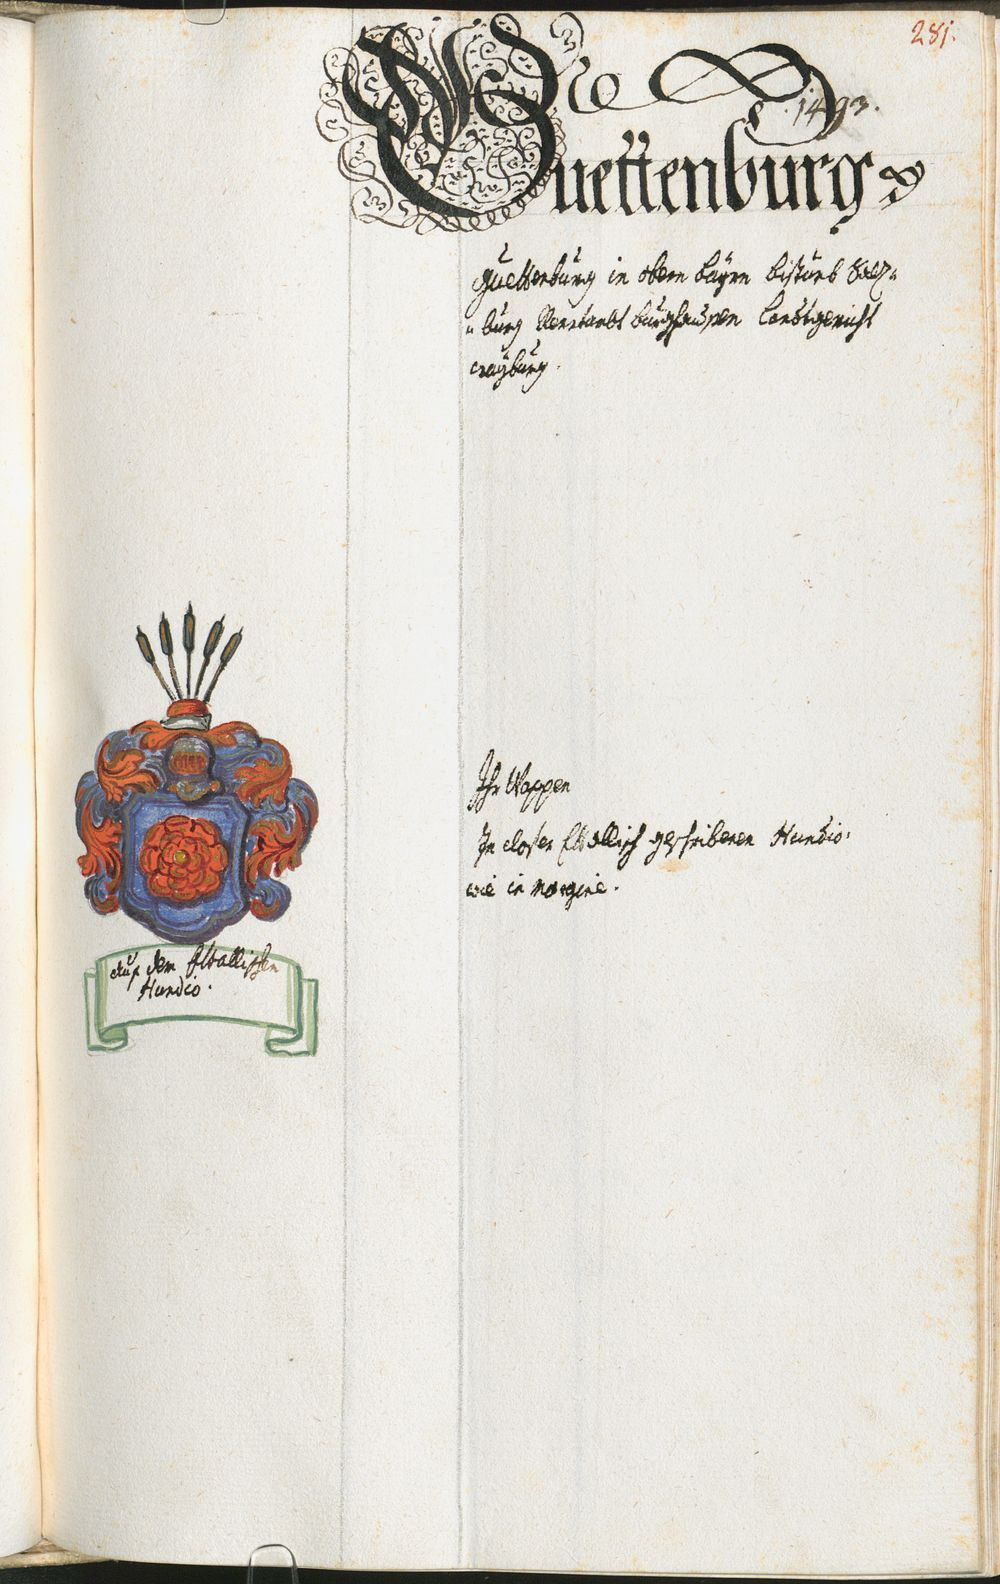 281.
No
1493.
Guettenburg
Guettenburg in obern bayrn bistumb Salz=
=burg Renntambt burghausen Landtgericht
crayburg.
Ihr Wappen
In closter Etallisch geschribenen Hundio.
wie in margine.
auf dem Etallischen
Hundio.